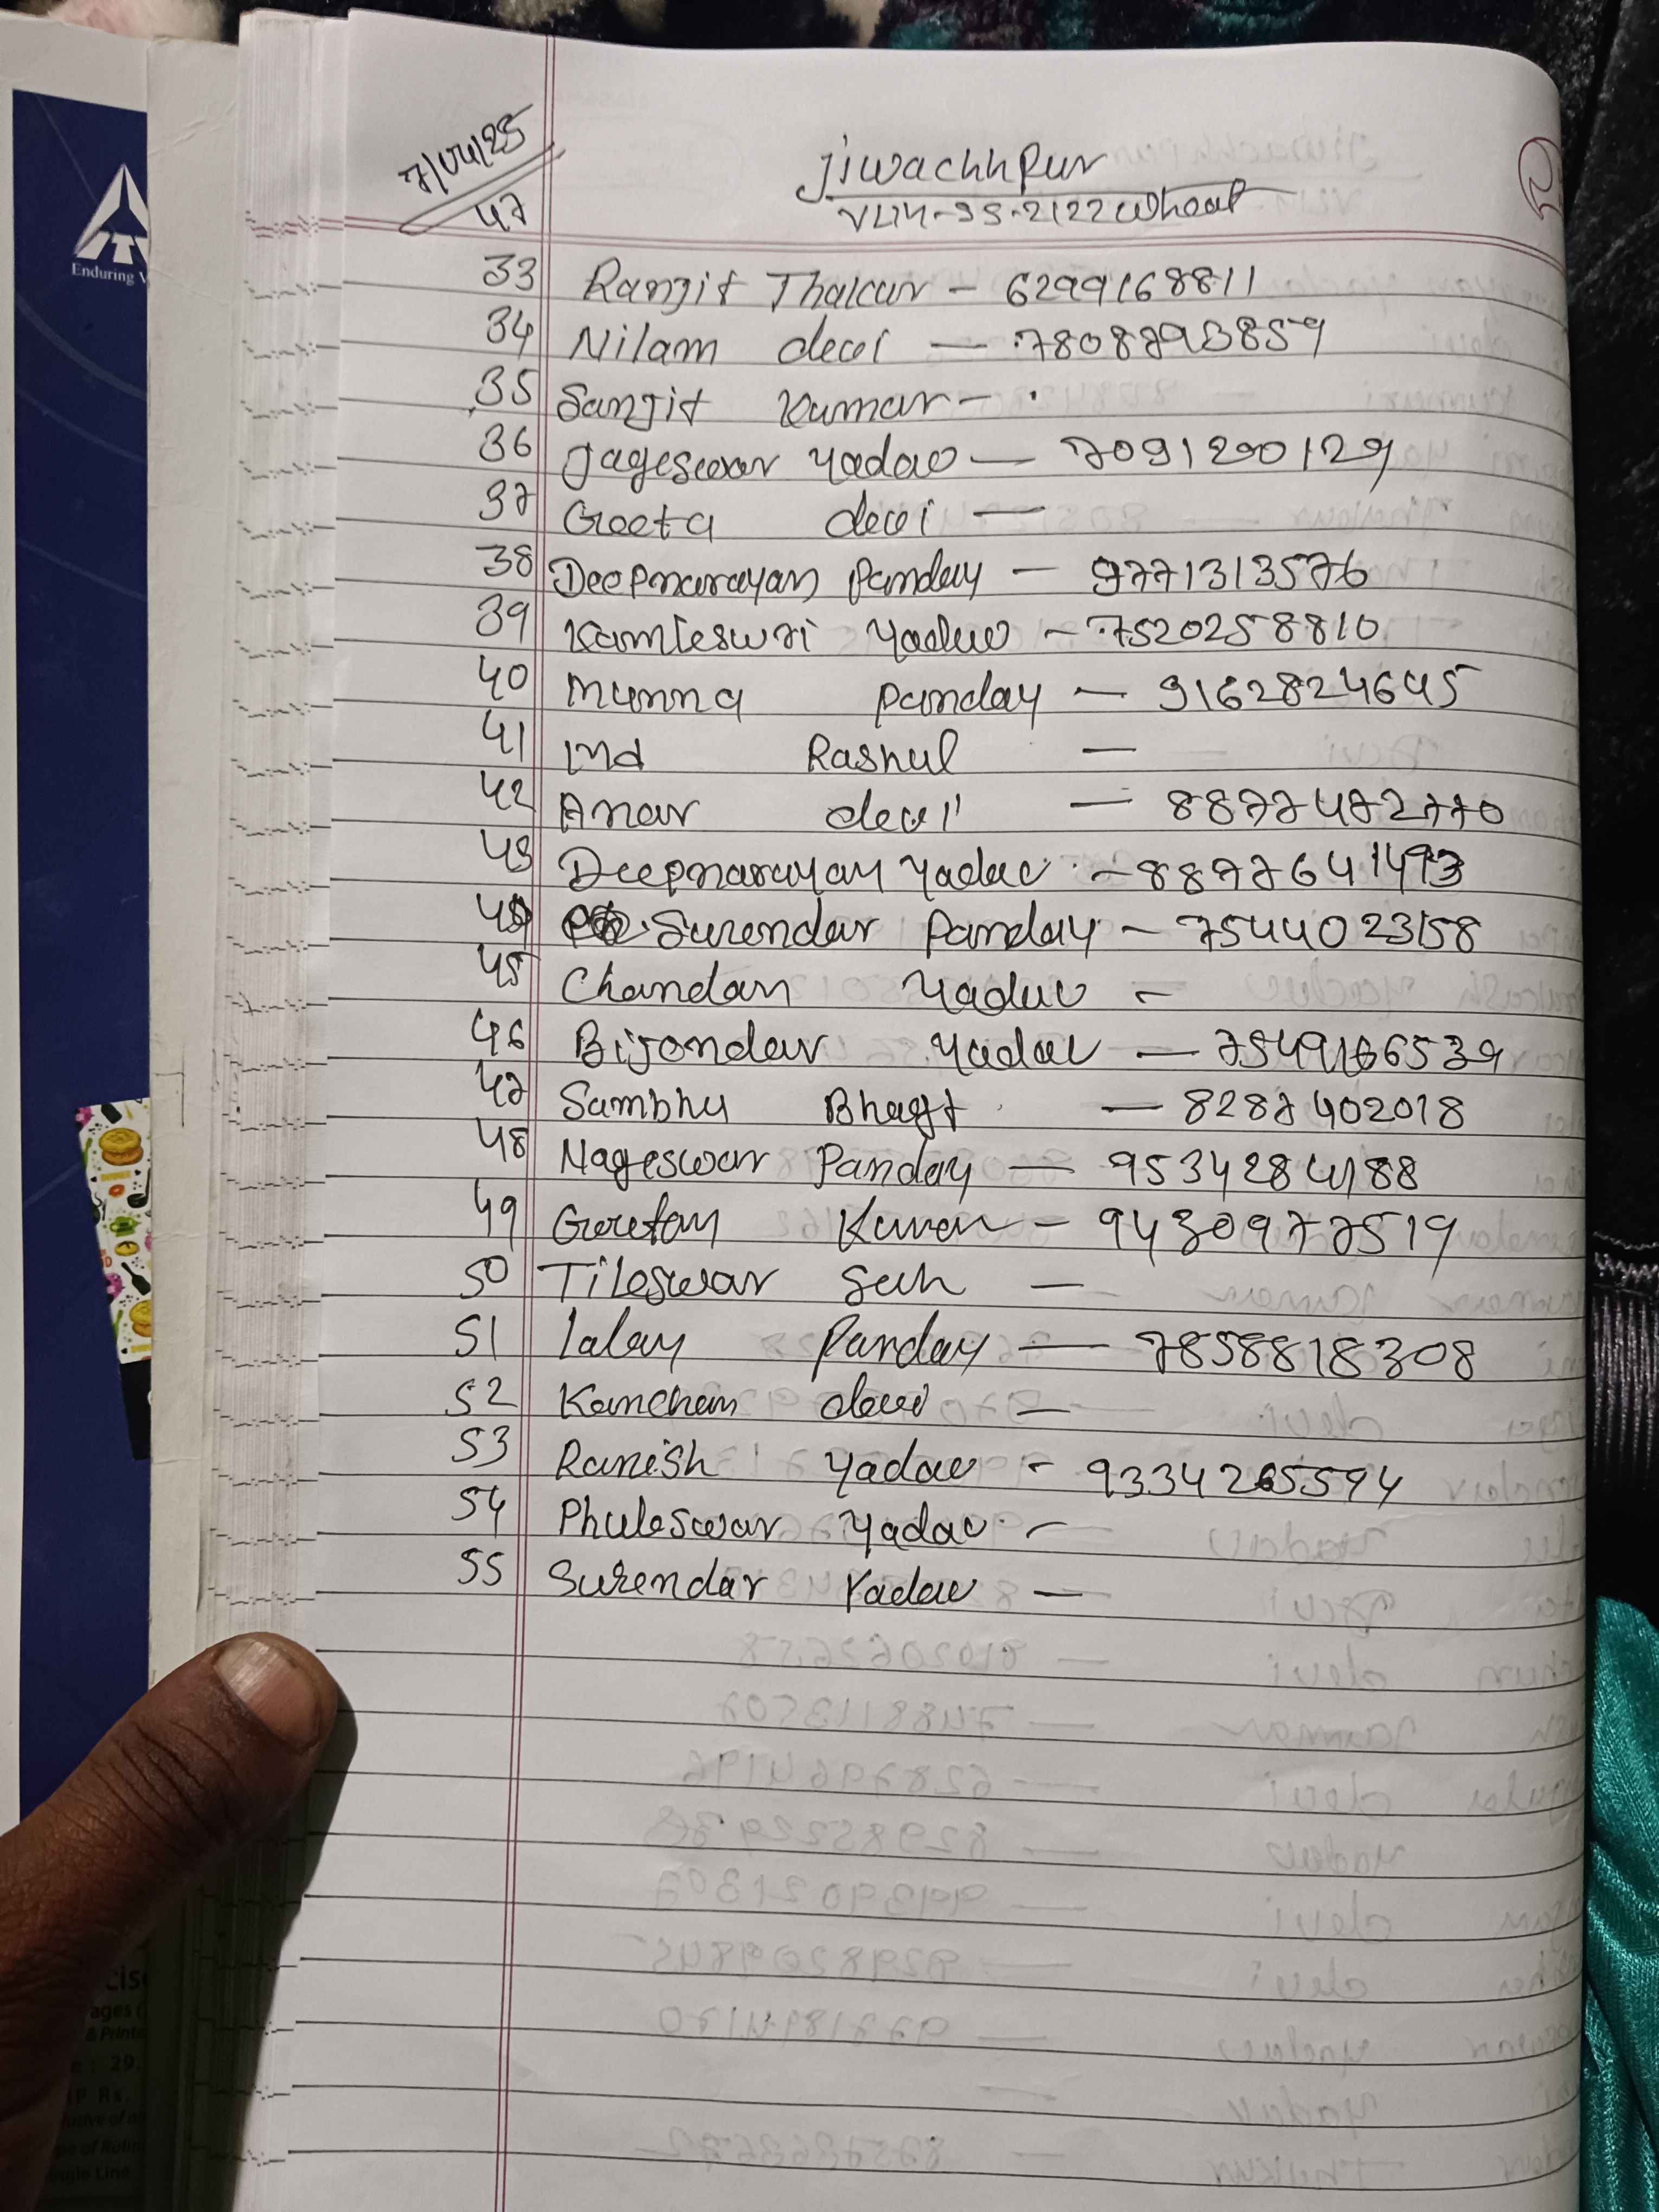 7/04/25
47
Jiwachhpur
VLM-95-2122 Wheat
33 Ranjit Thakur - 6299168811
34 Nilam devi - 7808793859
35 Sanjit Kumar -
36 Jageswar Yadav - 7091290129
37 Geeta devi -
38 Deepnarayan Panday - 9771313576
39 Kamleswri Yadav - 7520258810
40 Munna Panday - 9162824645
41 Md Rashul -
42 Anar devi - 8877472770
43 Deepnarayan Yadav - 8877641493
44 Surendar Panday - 7544023158
45 Chandan Yadav -
46 Bijendar Yadav - 7549166539
47 Sambhu Bhagt - 8287402018
48 Nageswar Panday - 9534284188
49 Gautam Kumar - 9430977519
50 Tileswar Sah -
51 Lalay Panday - 7858818308
52 Kanchan devi -
53 Ranish Yadav - 9334265594
54 Phuleswar Yadav -
55 Surendar Yadav -
ITC
Enduring V